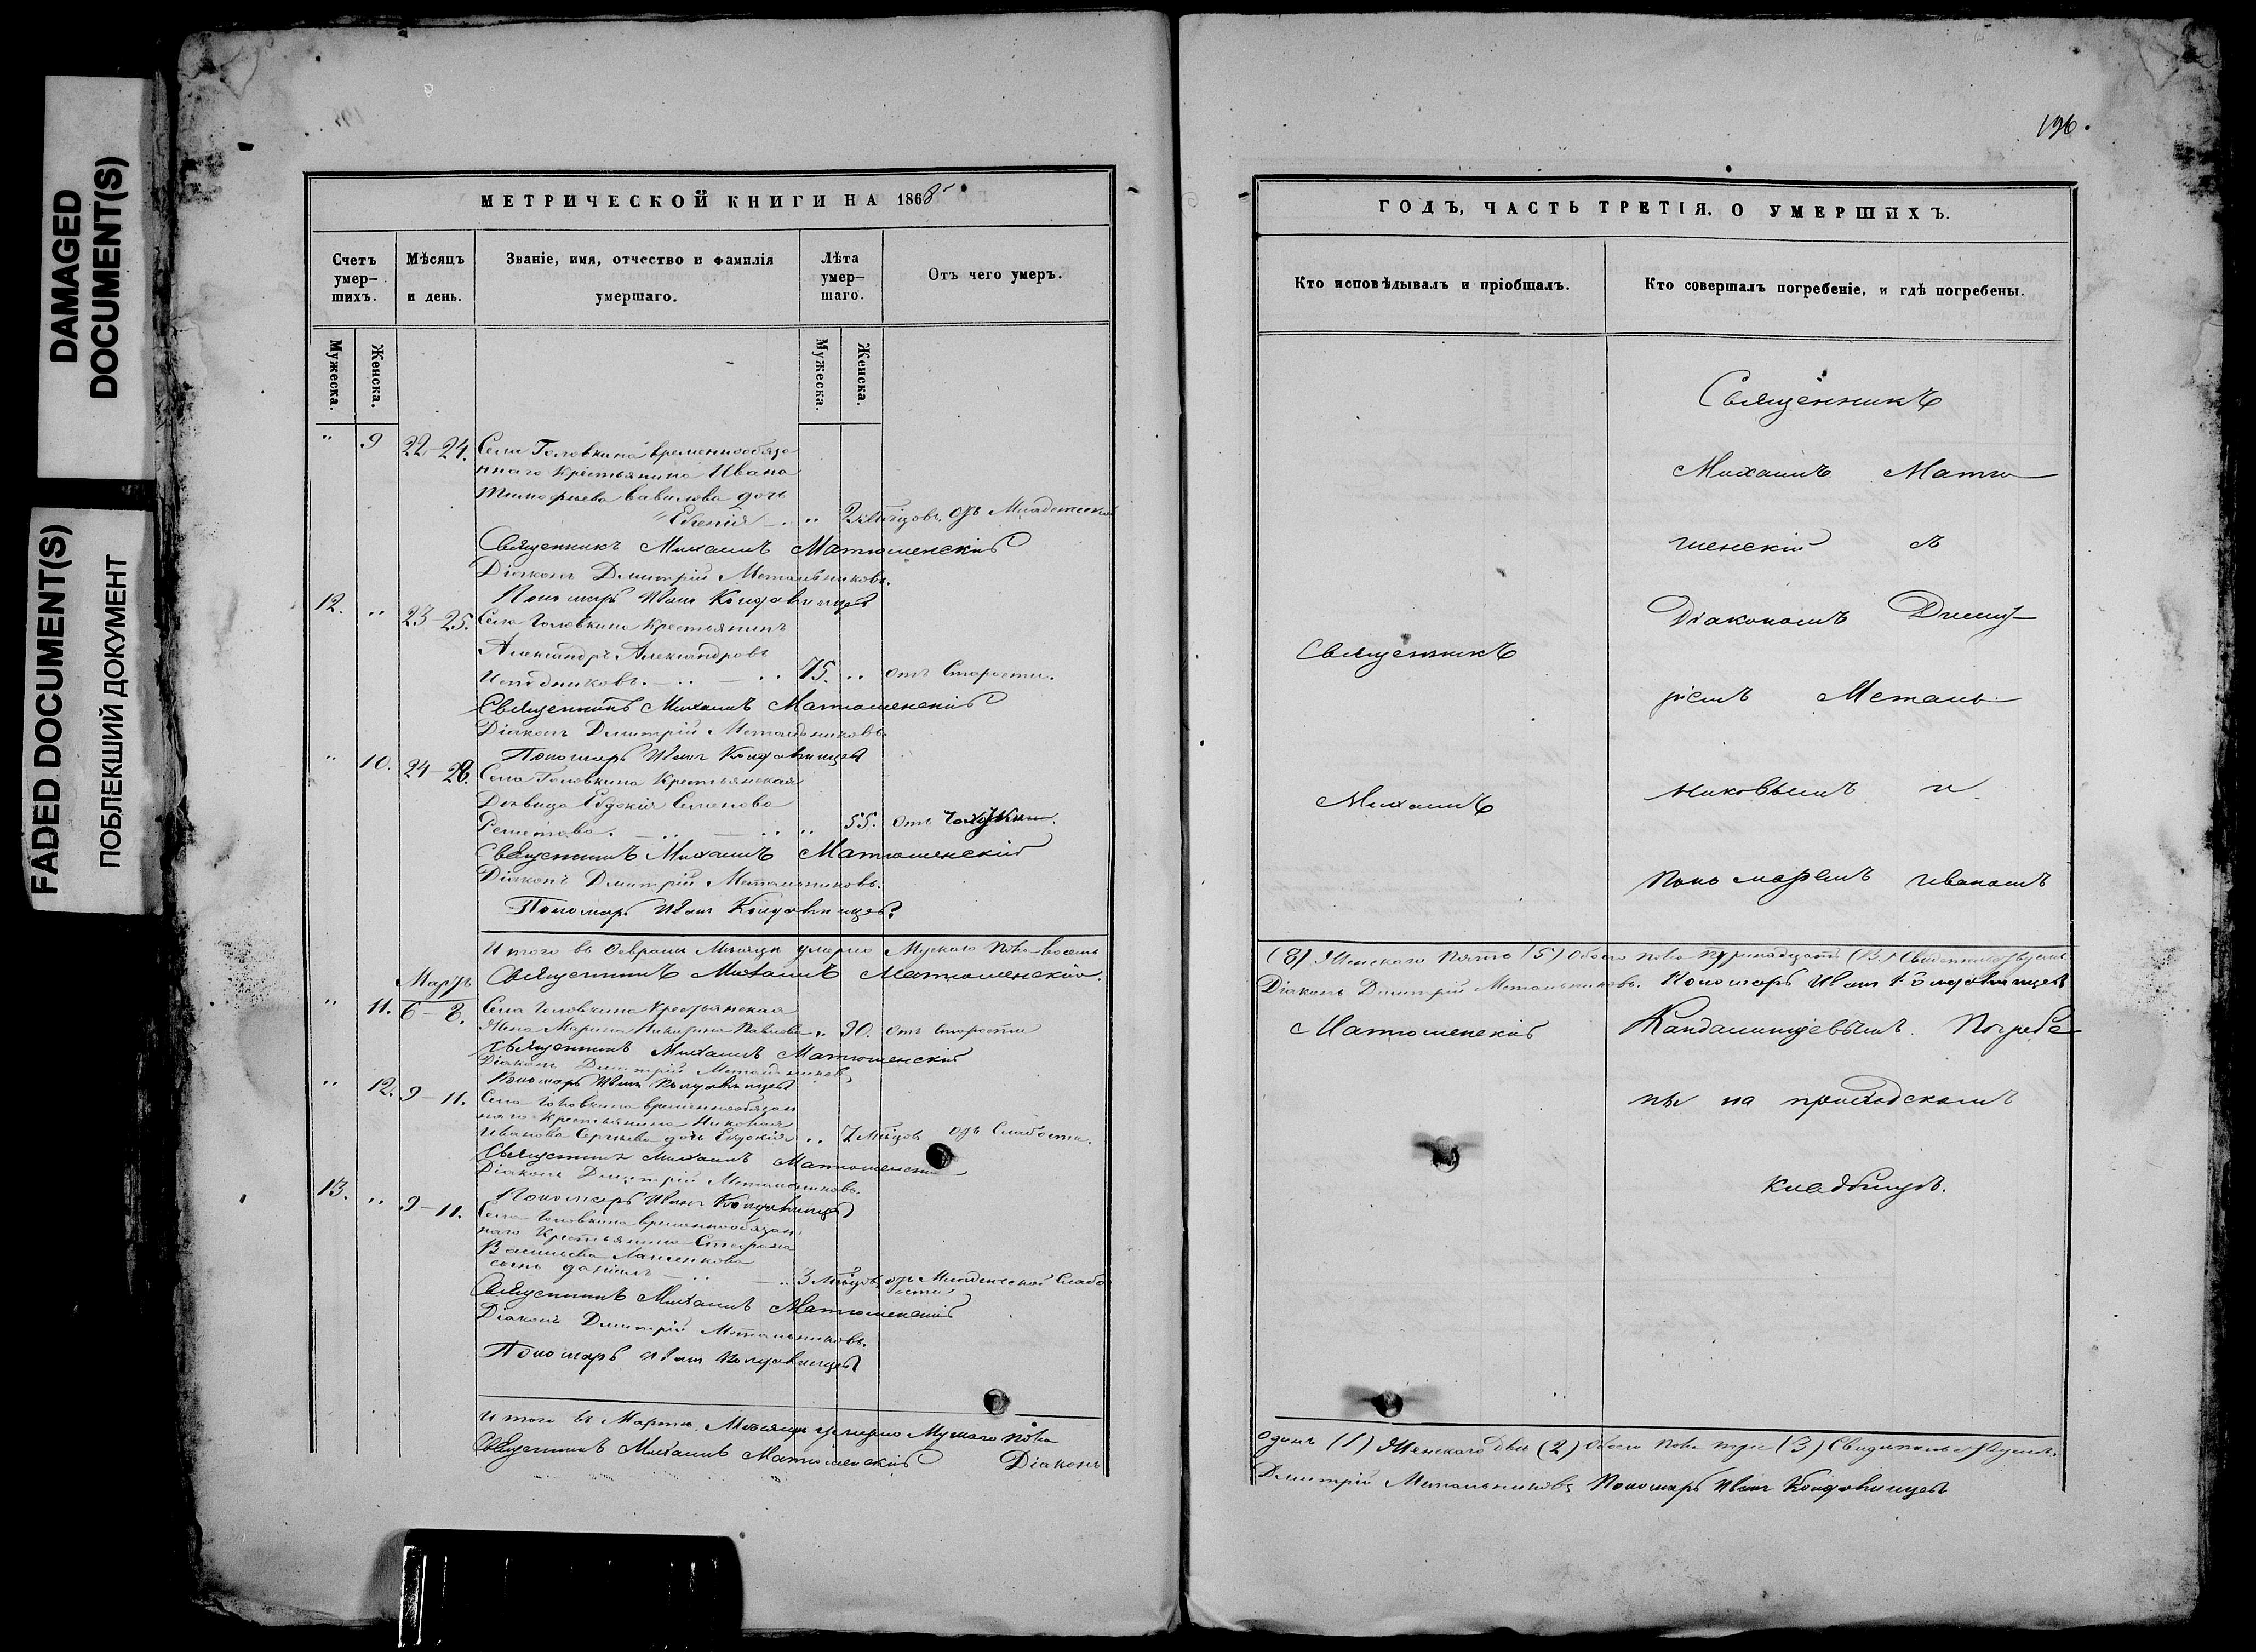 DAMAGED
DOCUMENT(S)
FADED DOCUMENT(S)
ПОБЛЕКШИЙ ДОКУМЕНТ
МЕТРИЧЕСКОЙ КНИГИ НА 1868
Счетъ умер-шихъ.
Мѣсяцъ и день.
Званіе, имя, отчество и фамилія умершаго.
Лѣта умер-шаго.
Отъ чего умеръ.
Мужеска.
Женска.
Мужеска.
Женска.
" 9 22-24. Села Головкина временнообяза
ннаго крестьянина Ивана
Тимофѣева Вавилова дочь
" " Младенческой
Священникъ Михаилъ Матюшенскій
Діаконъ Дмитрій Метальниковъ.
Пономарь Иванъ
12. " 23-25. Села Головкина крестьянинъ
Александръ Александровъ
75. " отъ Старости.
Священникъ Михаилъ Матюшенскій
Діаконъ Дмитрій Метальниковъ.
Пономарь Иванъ
" 10. 24-26. Села Головкина Крестьянская
Дѣвица Евдокія Семенова
" 55. отъ
Священникъ Михаилъ Матюшенскій
Діаконъ Дмитрій Метальниковъ.
Пономарь Иванъ
Итого въ Февралѣ Мѣсяцѣ умерло Мужскаго пола восемь
Мартъ Священникъ Михаилъ Матюшенскій.
" 11. 6-8. Села Головкина крестьянская
Жена Марина Никитина Павлова " 90. отъ старости
Священникъ Михаилъ Матюшенскій
Діаконъ Дмитрій Метальниковъ
Пономарь Иванъ
" 12. 9-11. Села Головкина временнообязан
наго Крестьянина Николая
Иванова Сергѣева дочь Евдокія " 7 мѣсцовъ отъ Слабости.
Священникъ Михаилъ Матюшенскій
Діаконъ Дмитрій Метальниковъ.
Пономарь Иванъ
13. " 9-11. Села Головкина временнообязан
наго Крестьянина Стефана
Васильева
сынъ Даніилъ " 3 мѣсцовъ отъ Младенческой Слабо
сти
Священникъ Михаилъ Матюшенскій
Діаконъ Дмитрій Метальниковъ.
Пономарь Иванъ
Итого въ Мартѣ Мѣсяцѣ умерло Мужскаго пола
Священникъ Михаилъ Матюшенскій Діаконъ
196.
ГОДЪ, ЧАСТЬ ТРЕТІЯ, О УМЕРШИХЪ.
Кто исповѣдывалъ и пріобщалъ.
Кто совершалъ погребеніе, и гдѣ погребены.
Священникъ
Михаилъ
Матюшенскій
Священникъ
Михаилъ Матю
шенскій съ
Діакономъ Дмит
ріемъ Металь
никовымъ и
пономаремъ Иваномъ
(8) Женскаго пять (5) Обоего пола тринадцать (13.)
Діаконъ Дмитрій Метальниковъ. Пономарь Иванъ
Погребе
ны на приходскомъ
кладбищѣ.
одинъ (1) Женскаго Двѣ (2) Обоего пола три (3)
Дмитрій Метальниковъ Пономарь Иванъ